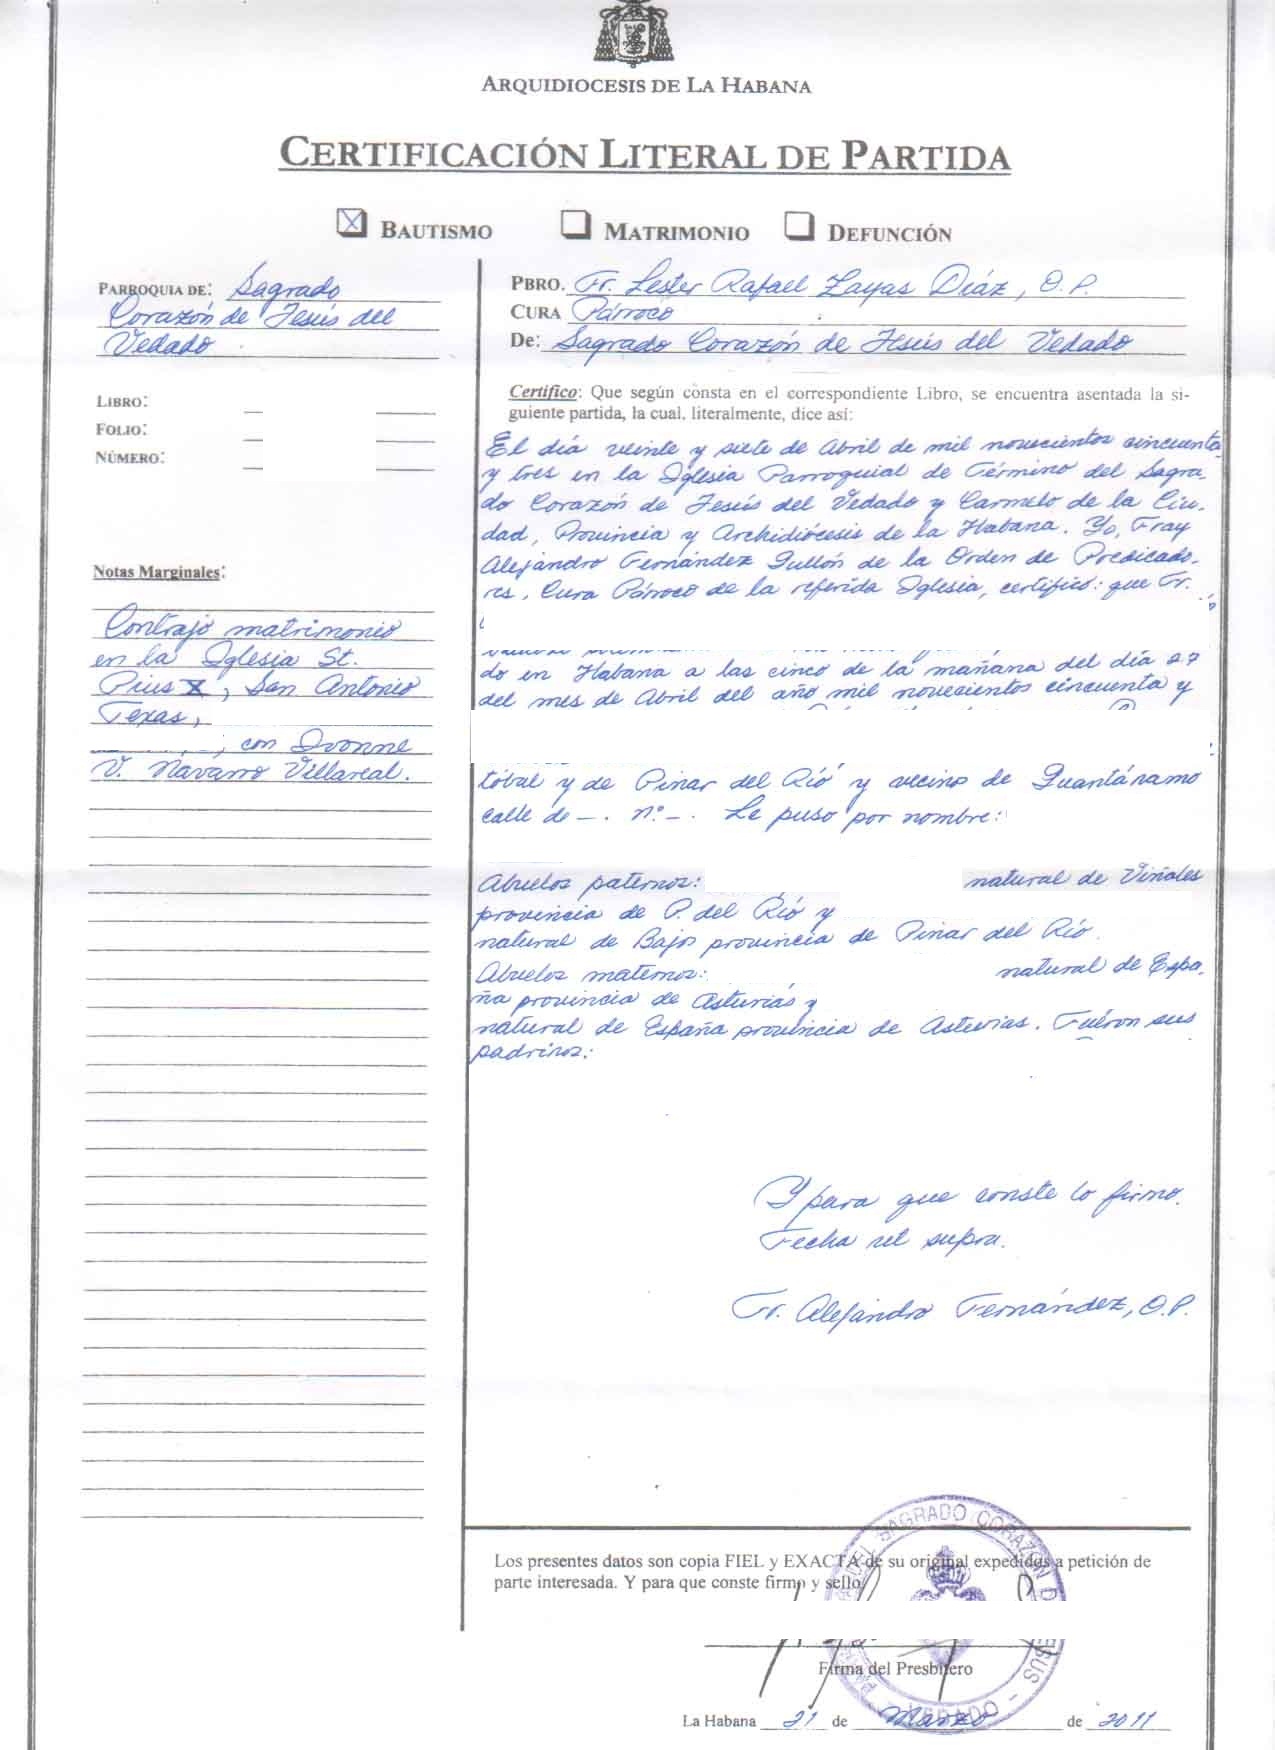 ARQUIDIOCESIS DE LA HABANA
CERTIFICACIÓN LITERAL DE PARTIDA
BAUTISMO MATRIMONIO DEFUNCIÓN
PARROQUIA DE: Sagrado
Corazón de Jesús del
Vedado
LIBRO:
FOLIO:
NÚMERO:
Notas Marginales:
Contrajo matrimonio
en la Iglesia St.
Pius X, San Antonio
Texas,
, con Ivonne
V. Navarro Villareal.
PBRO. Fr. Lester Rafael Zayas Díaz, O.P.
CURA Párroco
De: Sagrado Corazón de Jesús del Vedado
Certifico: Que según consta en el correspondiente Libro, se encuentra asentada la si-
guiente partida, la cual, literalmente, dice así:
El día veinte y siete de Abril de mil novecientos cincuenta
y tres en la Iglesia Parroquial de Término del Sagra-
do Corazón de Jesús del Vedado y Carmelo de la Ciu-
dad, Provincia y Archidiócesis de la Habana. Yo, Fray
Alejandro Fernández Gullón de la Orden de Predicado-
res, Cura Párroco de la referida Iglesia, certifico: que Fr.
do en Habana a las cinco de la mañana del día 27
del mes de Abril del año mil novecientos cincuenta y
tóbal y de Pinar del Río y vecino de Guantánamo
calle de —. nº —. Le puso por nombre:
Abuelos paternos: natural de Viñales
provincia de P. del Río y
natural de Bajo provincia de Pinar del Río.
Abuelos maternos: natural de Espa-
ña provincia de Asturias y
natural de España provincia de Asturias. Fueron sus
padrinos:
Y para que conste lo firmo.
Fecha ut supra.
Fr. Alejandro Fernández, O.P.
Los presentes datos son copia FIEL y EXACTA de su original expedidos a petición de
parte interesada. Y para que conste firmo y sello.
Firma del Presbítero
SAGRADO CORAZÓN DE JESUS - VEDADO
La Habana 21 de Marzo de 2011